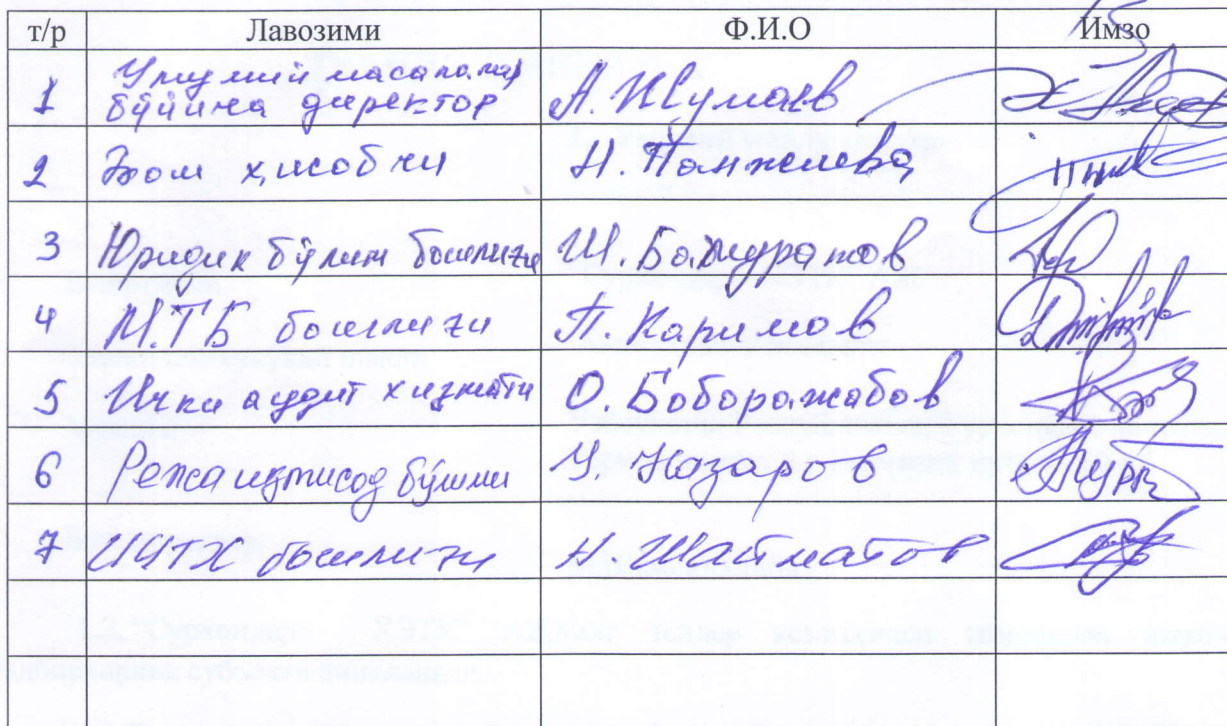 т/р Лавозими Ф.И.О Имзо
1 Умумий масалалар бўйича директор А. Жумаев
2 Бош ҳисобчи Н. Панжиева
3 Юридик бўлим бошлиғи Ш. Баймуратов
4 М.Т.Б бошлиғи П. Каримов
5 Ички аудит хизмати О. Боборажабов
6 Режаиқтисод бўлими У. Назаров
7 ИЧТХ бошлиғи Н. Шайматов